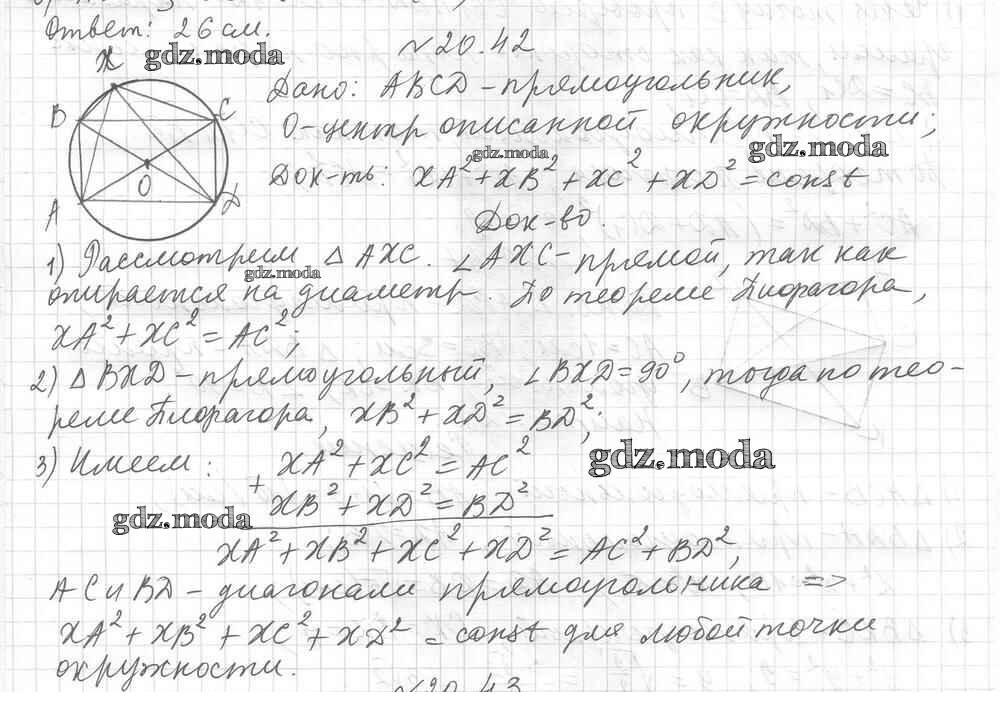 Ответ: 26 см.
№20.42
gdz.moda
X
B
C
O
A
D
Дано: ABCD - прямоугольник,
O-центр описанной окружности;
gdz.moda
gdz.moda
Док-ть: XA² + XB² + XC² + XD² = const
Док-во.
1) Рассмотрим △ AXC. ∠AXC - прямой, так как
gdz.moda
опирается на диаметр. По теореме Пифагора,
XA² + XC² = AC²;
2) △ BXD - прямоугольный, ∠BXD = 90°, тогда по тео-
реме Пифагора, XB² + XD² = BD²;
3) Имеем: XA² + XC² = AC²
gdz.moda
+ XB² + XD² = BD²
gdz.moda
XA² + XB² + XC² + XD² = AC² + BD²,
AC и BD - диагонали прямоугольника =>
XA² + XB² + XC² + XD² = const для любой точки
окружности.
№20.43